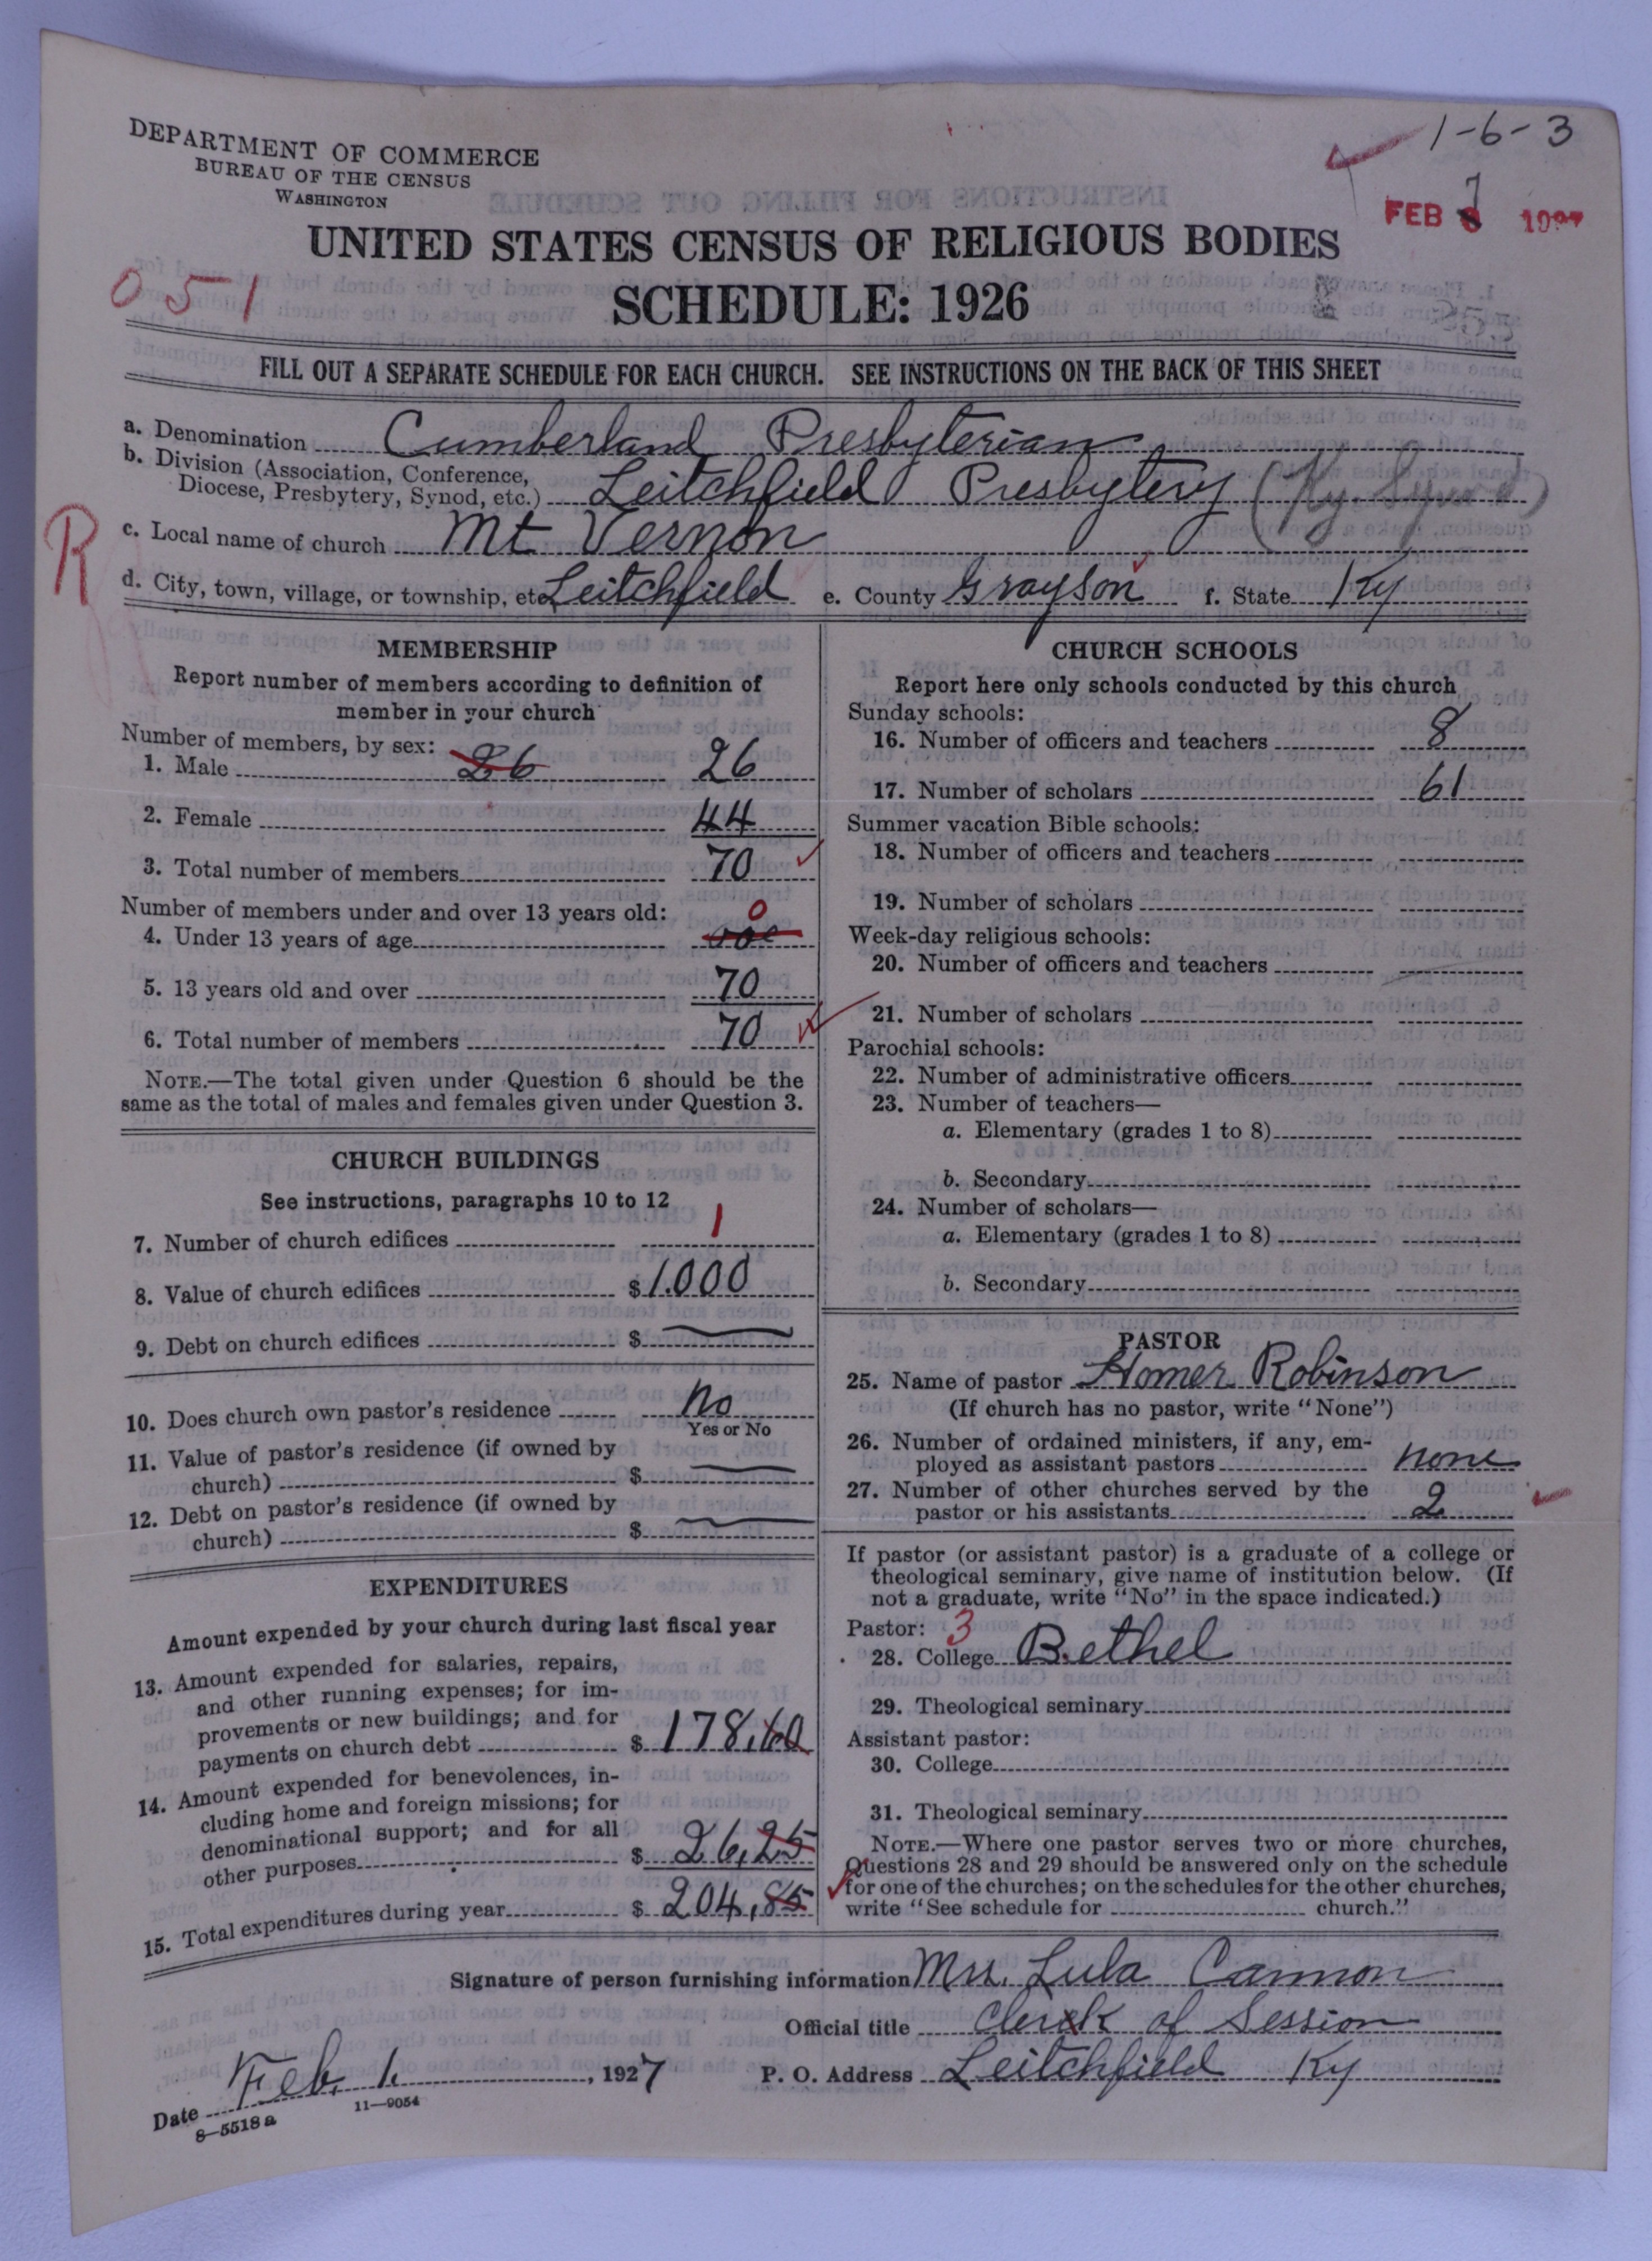 DEPARTMENT OF COMMERCE
BUREAU OF THE CENSUS
WASHINGTON
1-6-3
FEB 7 1927
UNITED STATES CENSUS OF RELIGIOUS BODIES
051
SCHEDULE: 1926
FILL OUT A SEPARATE SCHEDULE FOR EACH CHURCH. SEE INSTRUCTIONS ON THE BACK OF THIS SHEET
a. Denomination Cumberland Presbyterian
b. Division (Association, Conference,
Diocese, Presbytery, Synod, etc.) Leitchfield Presbytery (Ky. Synod)
R
c. Local name of church Mt Vernon
d. City, town, village, or township, etc. Leitchfield e. County Grayson f. State Ky
MEMBERSHIP
Report number of members according to definition of
member in your church
Number of members, by sex:
1. Male 26 26
2. Female 44
3. Total number of members 70
Number of members under and over 13 years old: 0
4. Under 13 years of age
5. 13 years old and over 70
6. Total number of members 70
NOTE.—The total given under Question 6 should be the
same as the total of males and females given under Question 3.
CHURCH BUILDINGS
See instructions, paragraphs 10 to 12
7. Number of church edifices 1
8. Value of church edifices $1.000
9. Debt on church edifices $
10. Does church own pastor's residence No
Yes or No
11. Value of pastor's residence (if owned by
church) $
12. Debt on pastor's residence (if owned by
church) $
EXPENDITURES
Amount expended by your church during last fiscal year
13. Amount expended for salaries, repairs,
and other running expenses; for im-
provements or new buildings; and for
payments on church debt $ 178,60
14. Amount expended for benevolences, in-
cluding home and foreign missions; for
denominational support; and for all
other purposes $ 26,25
15. Total expenditures during year $ 204,85
CHURCH SCHOOLS
Report here only schools conducted by this church
Sunday schools:
16. Number of officers and teachers 8
17. Number of scholars 61
Summer vacation Bible schools:
18. Number of officers and teachers
19. Number of scholars
Week-day religious schools:
20. Number of officers and teachers
21. Number of scholars
Parochial schools:
22. Number of administrative officers
23. Number of teachers—
a. Elementary (grades 1 to 8)
b. Secondary
24. Number of scholars—
a. Elementary (grades 1 to 8)
b. Secondary
PASTOR
25. Name of pastor Homer Robinson
(If church has no pastor, write "None")
26. Number of ordained ministers, if any, em-
ployed as assistant pastors none
27. Number of other churches served by the
pastor or his assistants 2
If pastor (or assistant pastor) is a graduate of a college or
theological seminary, give name of institution below. (If
not a graduate, write "No" in the space indicated.)
Pastor: 3
28. College Bethel
29. Theological seminary
Assistant pastor:
30. College
31. Theological seminary
NOTE.—Where one pastor serves two or more churches,
Questions 28 and 29 should be answered only on the schedule
for one of the churches; on the schedules for the other churches,
write "See schedule for church."
Signature of person furnishing information Mrs. Lula Cannon
Official title Clerk of Session
Date Feb. 1. , 1927 P. O. Address Leitchfield Ky
8—5518a 11—9054